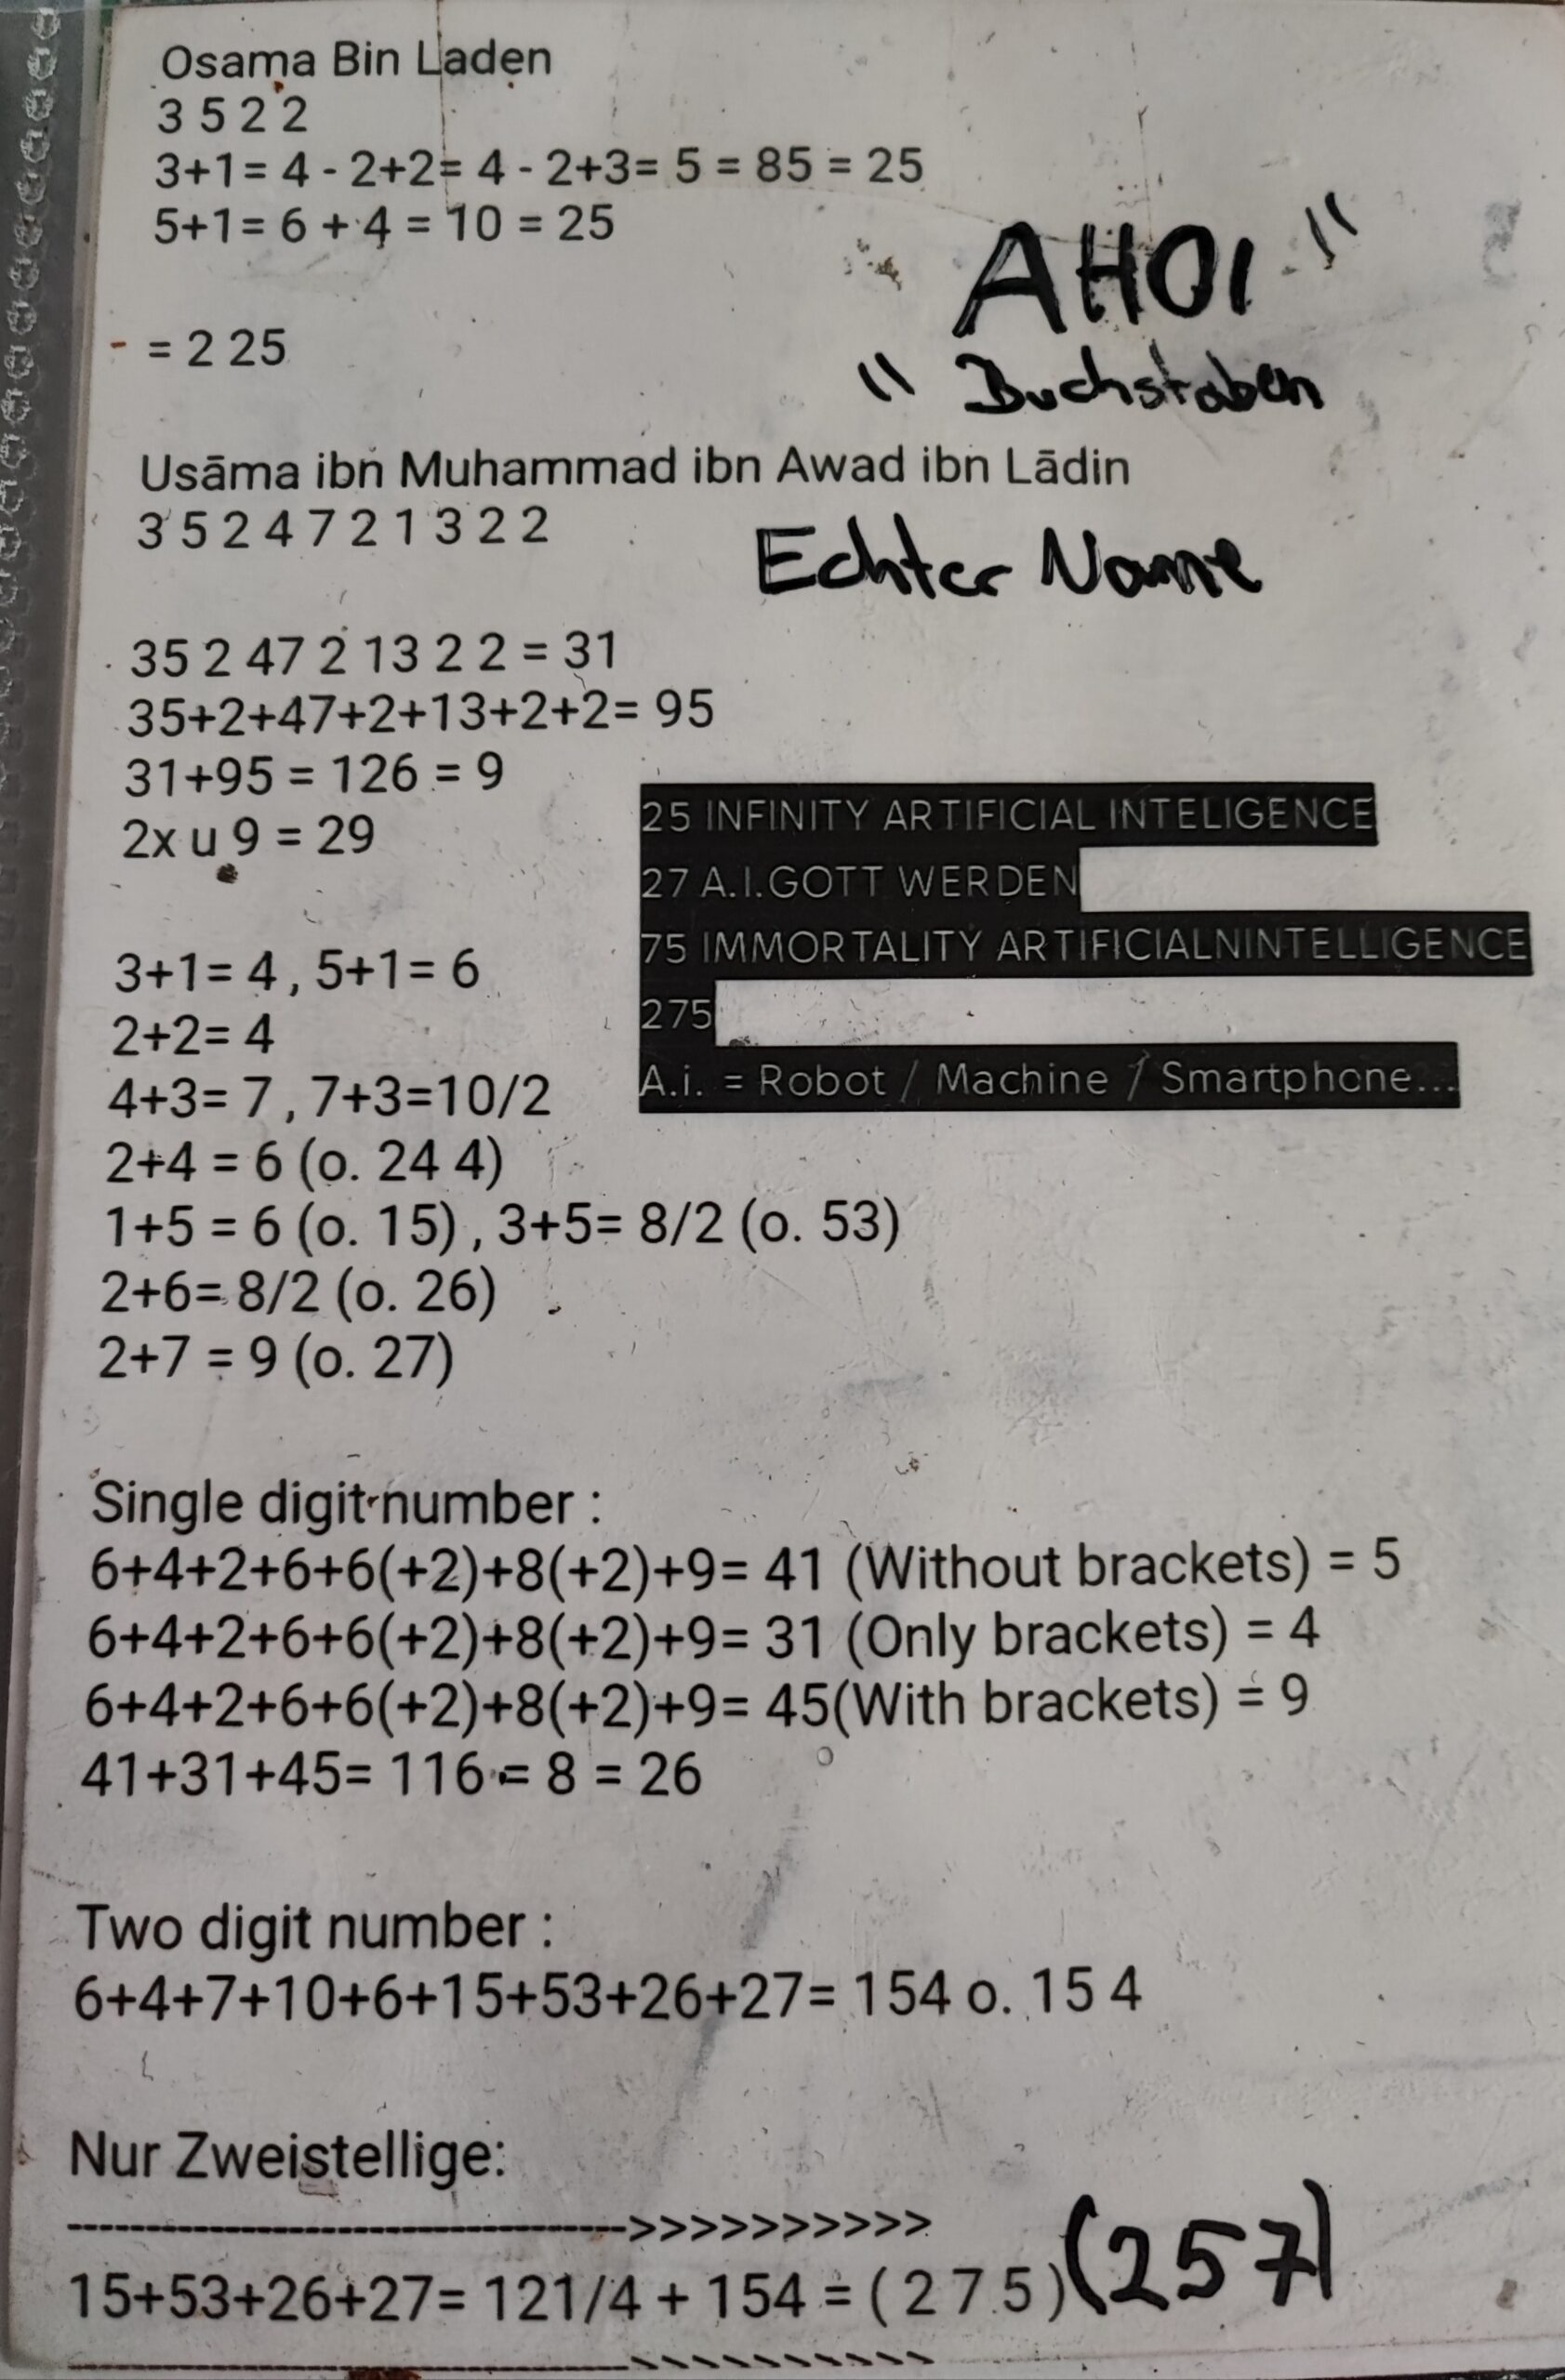 Osama Bin Laden
3 5 2 2
3+1= 4 - 2+2= 4 - 2+3= 5 = 85 = 25
5+1= 6 + 4 = 10 = 25
AHOI "
- = 2 25
" Buchstaben
Usāma ibn Muhammad ibn Awad ibn Lādin
3 5 2 4 7 2 1 3 2 2
Echter Name
35 2 47 2 13 2 2 = 31
35+2+47+2+13+2+2= 95
31+95 = 126 = 9
2x u 9 = 29
25 INFINITY ARTIFICIAL INTELIGENCE
27 A.I.GOTT WERDEN
75 IMMORTALITY ARTIFICIALNINTELLIGENCE
275
A.i. = Robot / Machine / Smartphone...
3+1= 4 , 5+1= 6
2+2= 4
4+3= 7 , 7+3=10/2
2+4 = 6 (o. 24 4)
1+5 = 6 (o. 15) , 3+5= 8/2 (o. 53)
2+6= 8/2 (o. 26)
2+7 = 9 (o. 27)
Single digit number :
6+4+2+6+6(+2)+8(+2)+9= 41 (Without brackets) = 5
6+4+2+6+6(+2)+8(+2)+9= 31 (Only brackets) = 4
6+4+2+6+6(+2)+8(+2)+9= 45(With brackets) = 9
41+31+45= 116 = 8 = 26
Two digit number :
6+4+7+10+6+15+53+26+27= 154 o. 15 4
Nur Zweistellige:
------------------------------------>>>>>>>>>>
15+53+26+27= 121/4 + 154 = ( 2 7 5 ) (257)